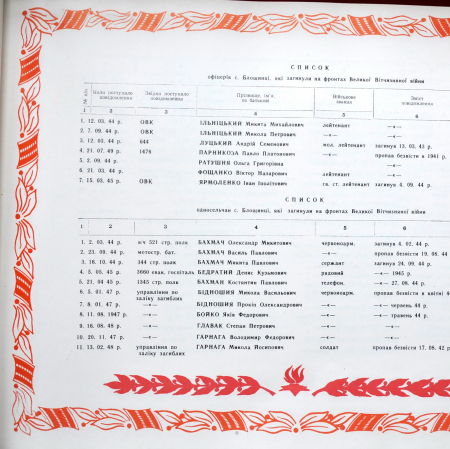 СПИСОК
офіцерів с. Блощинці, які загинули на фронтах Великої Вітчизняної війни
№ п/п Коли поступило повідомлення Звідки поступило повідомлення Прізвище, ім'я, по батькові Військове звання Зміст повідомлення
1 2 3 4 5 6
1. 12. 03. 44 р. ОВК ІЛЬНІЦЬКИЙ Микита Михайлович лейтенант —«—
2. 7. 09. 44 р. ОВК ІЛЬНІЦЬКИЙ Микола Петрович —«— —«—
3. 12. 03. 44 р. 644 ЛУЦЬКИЙ Андрій Семенович мол. лейтенант загинув 13. 03. 43 р.
4. 21. 07. 49 р. 1476 ПАРНІКОЗА Павло Платонович —«— пропав безвісти в 1941 р.
5. 2. 09. 44 р. РАТУШНЯ Ольга Григорівна
6. 21. 03. 44 р. ФОЩАНКО Віктор Назарович лейтенант —«—
7. 15. 03. 45 р. ОВК ЯРМОЛЕНКО Іван Ізоаїтович гв. ст. лейтенант загинув 4. 09. 44 р.
СПИСОК
односельчан с. Блощинці, які загинули на фронтах Великої Вітчизняної війни
1 2 3 4 5 6
1. 2. 03. 44 р. в/ч 521 стр. полк БАХМАЧ Олександр Микитович червоноарм. загинув 4. 02. 44 р.
2. 23. 09. 44 р. мотостр. бат. БАХМАЧ Василь Павлович —«— пропав безвісти 19. 08. 44
3. 16. 10. 44 р. 344 стр. полк БАХМАЧ Микита Павлович сержант загинув 24. 09. 44 р.
4. 5. 05. 45 р. 3660 евак. госпіталь БЕДРАТИЙ Денис Кузьмович рядовий —«— 1945 р.
5. 21. 04. 45 р. 1345 стр. полк БАХМАН Костантин Павлович телефон. —«— 22. 08. 44 р.
6. 5. 01. 47 р. управління по заліку загиблих БІДНОШИЯ Микола Васильович червоноарм. пропав безвісти в квітні 4
7. 8. 01. 47 р. —«— БІДНОШИЯ Прокіп Олександрович —«— —«— червень 44 р.
8. 11. 08. 1947 р. —«— БОЙКО Яків Федорович —«— —«— травень 44 р.
9. 16. 08. 48 р. —«— ГЛАВАК Степан Петрович —«— —«—
10. 20. 11. 47 р. —«— ГАРНАГА Володимир Федорович —«— —«—
11. 13. 02. 48 р. управління по заліку загиблих ГАРНАГА Микола Йосипович солдат пропав безвісти 17. 08. 42 р